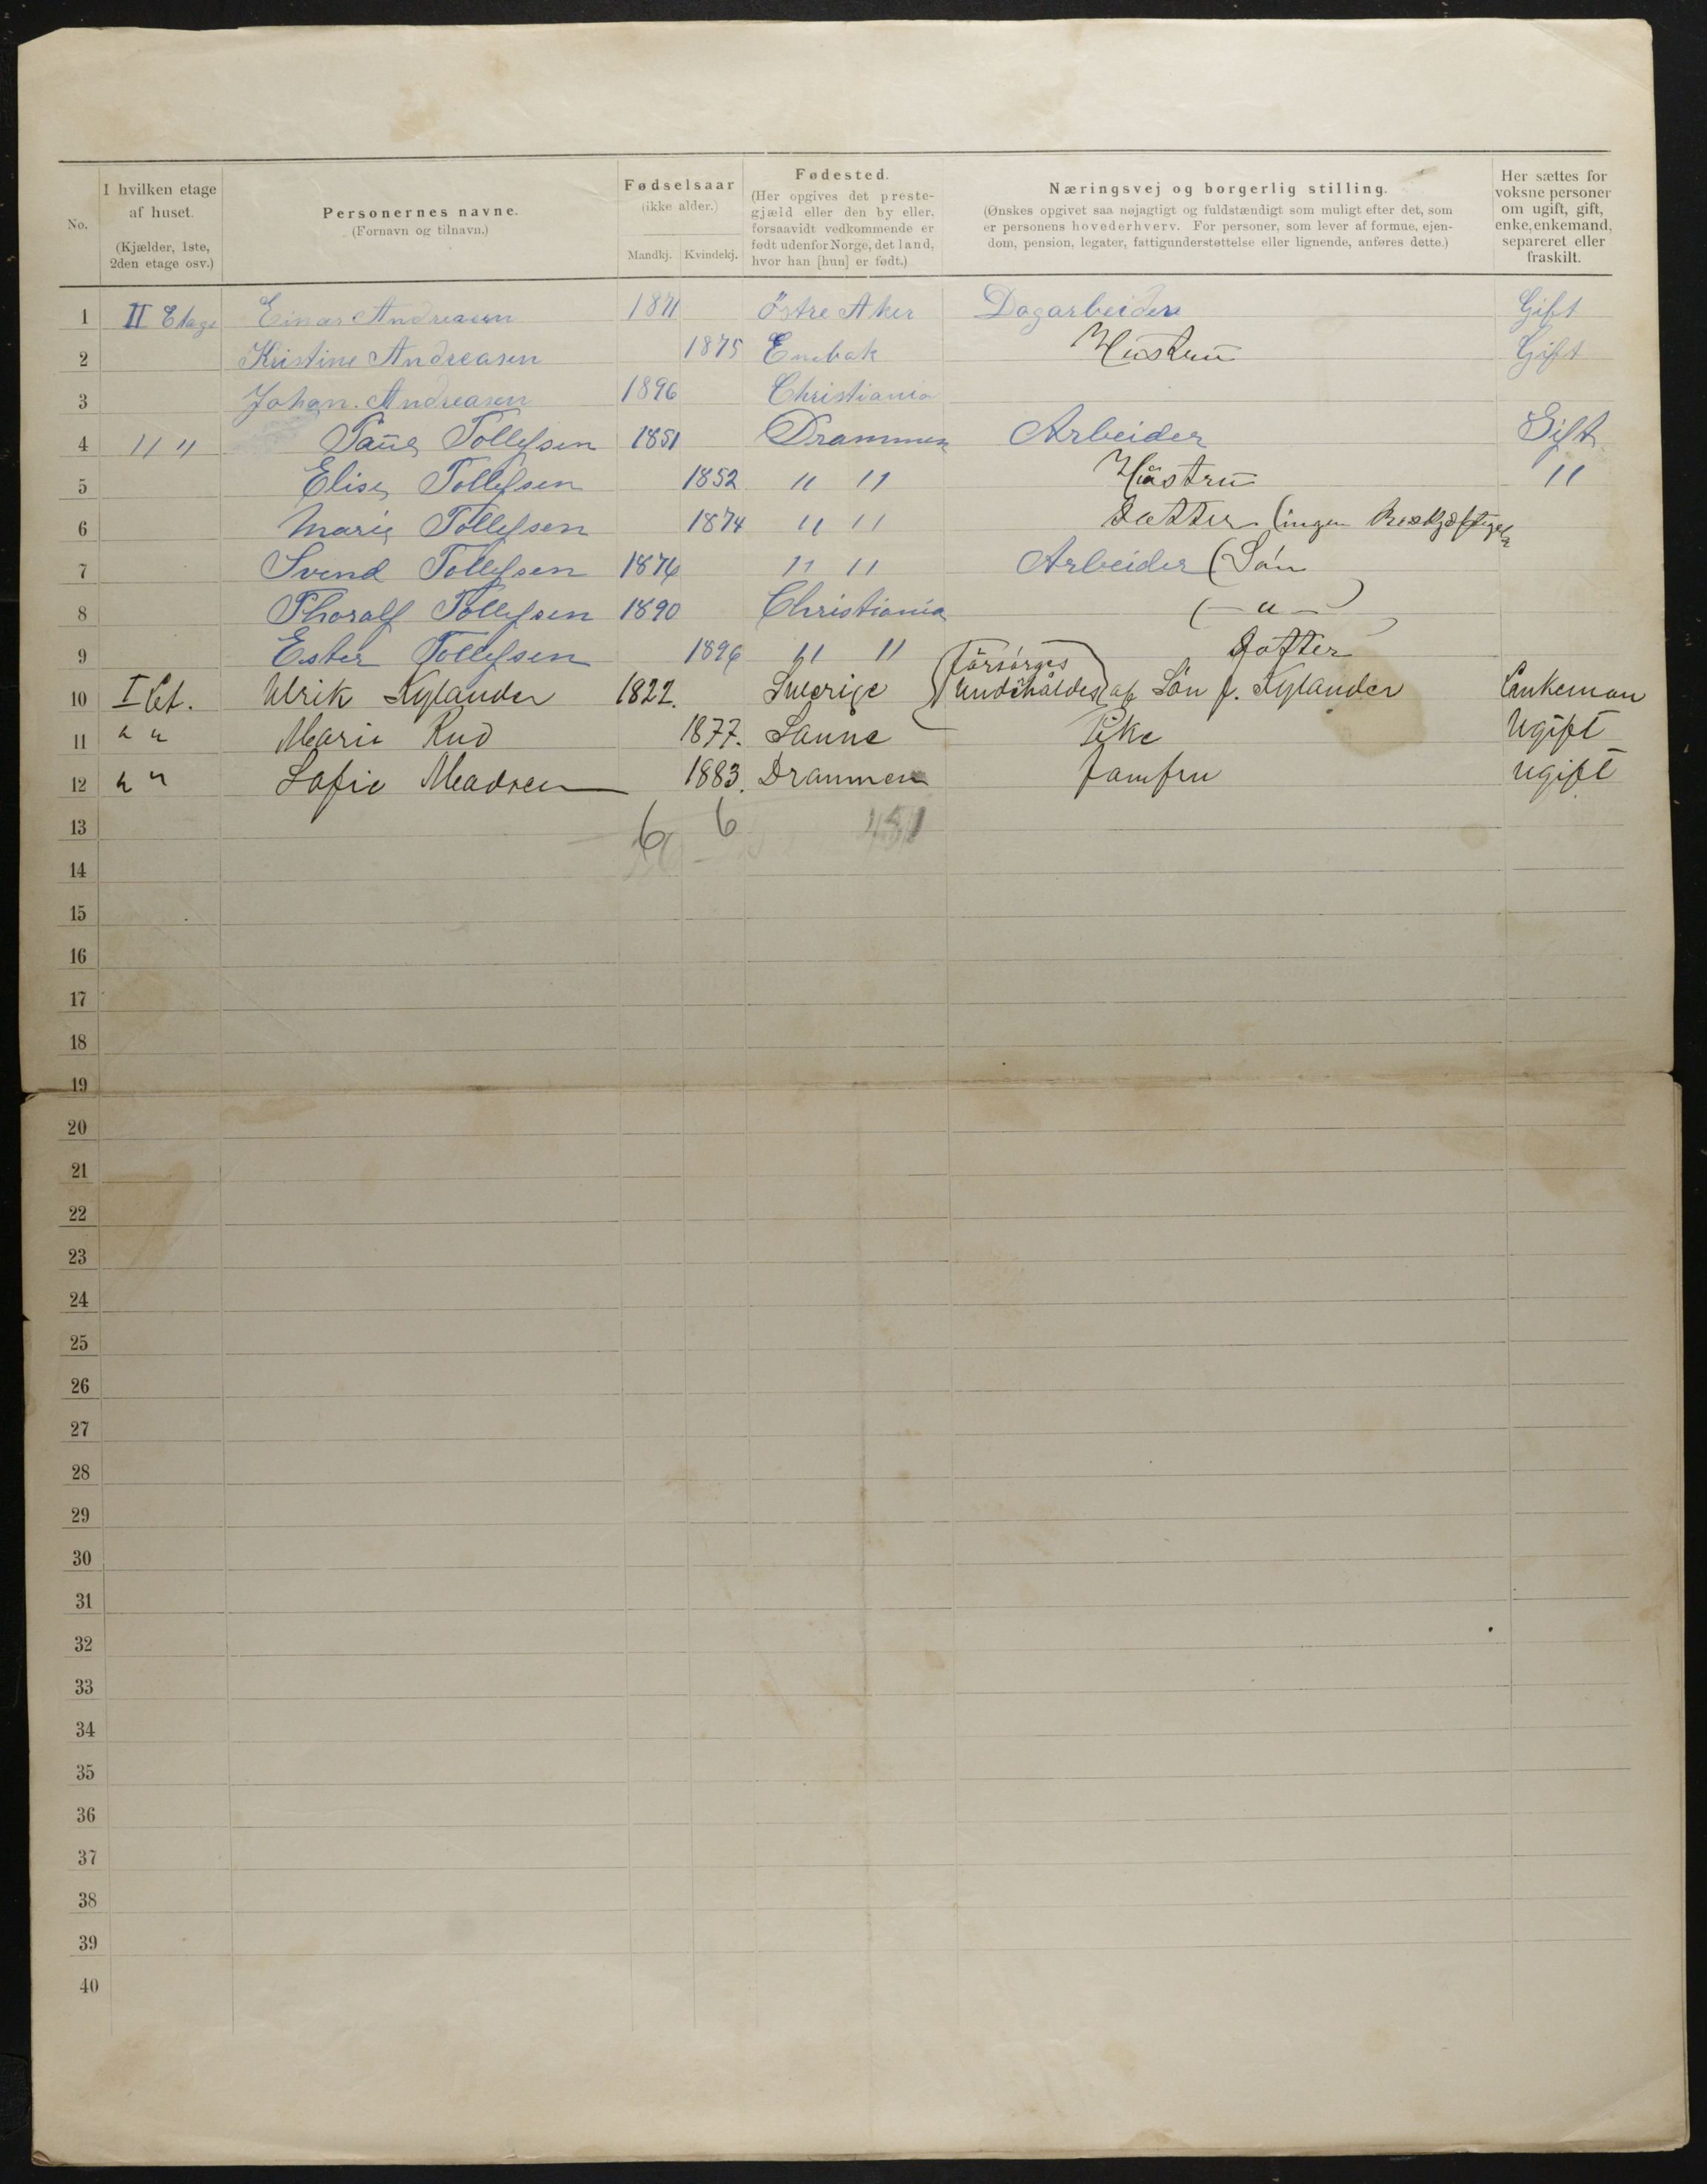 No. I hvilken etage af huset. (Kjælder, 1ste, 2den etage osv.) Personernes navne. (Fornavn og tilnavn.) Fødselsaar (ikke alder.) Mandkj. Kvindekj. Fødested. (Her opgives det prestegjæld eller den by eller, forsaavidt vedkommende er født udenfor Norge, det land, hvor han [hun] er født.) Næringsvej og borgerlig stilling. (Ønskes opgivet saa nøjagtigt og fuldstændigt som muligt efter det, som er personens hovederhverv. For personer, som lever af formue, ejendom, pension, legater, fattigunderstøttelse eller lignende, anføres dette.) Her sættes for voksne personer om ugift, gift, enke, enkemand, separeret eller fraskilt.
1 II Etage Einar Andreasen 1871 Östre Aker Dagarbeidere Gift
2 Kristine Andreasen 1875 Enebak Hustru Gift
3 Johan. Andreasen 1896 Christiania
4 " " Tollefsen 1851 Drammen Arbeider Gift
5 Elise Tollefsen 1852 " " Hustru "
6 Marie Tollefsen 1874 " " Datter (ingen
7 Svend Tollefsen 1876 " " Arbeider (Søn
8 Thoralf Tollefsen 1890 Christiania (—"—)
9 Ester Tollefsen 1896 " " Datter
10 I Et. Ulrik Kylander 1822. Sverige (Forsørges Underholdes) af Søn J. Kylander Enkeman
11 " " Marie Rud 1877. Sanne Pike Ugift
12 " " Sofie 1883. Drammen Jomfru ugift
13 6 6
14
15
16
17
18
19
20
21
22
23
24
25
26
27
28
29
30
31
32
33
34
35
36
37
38
39
40